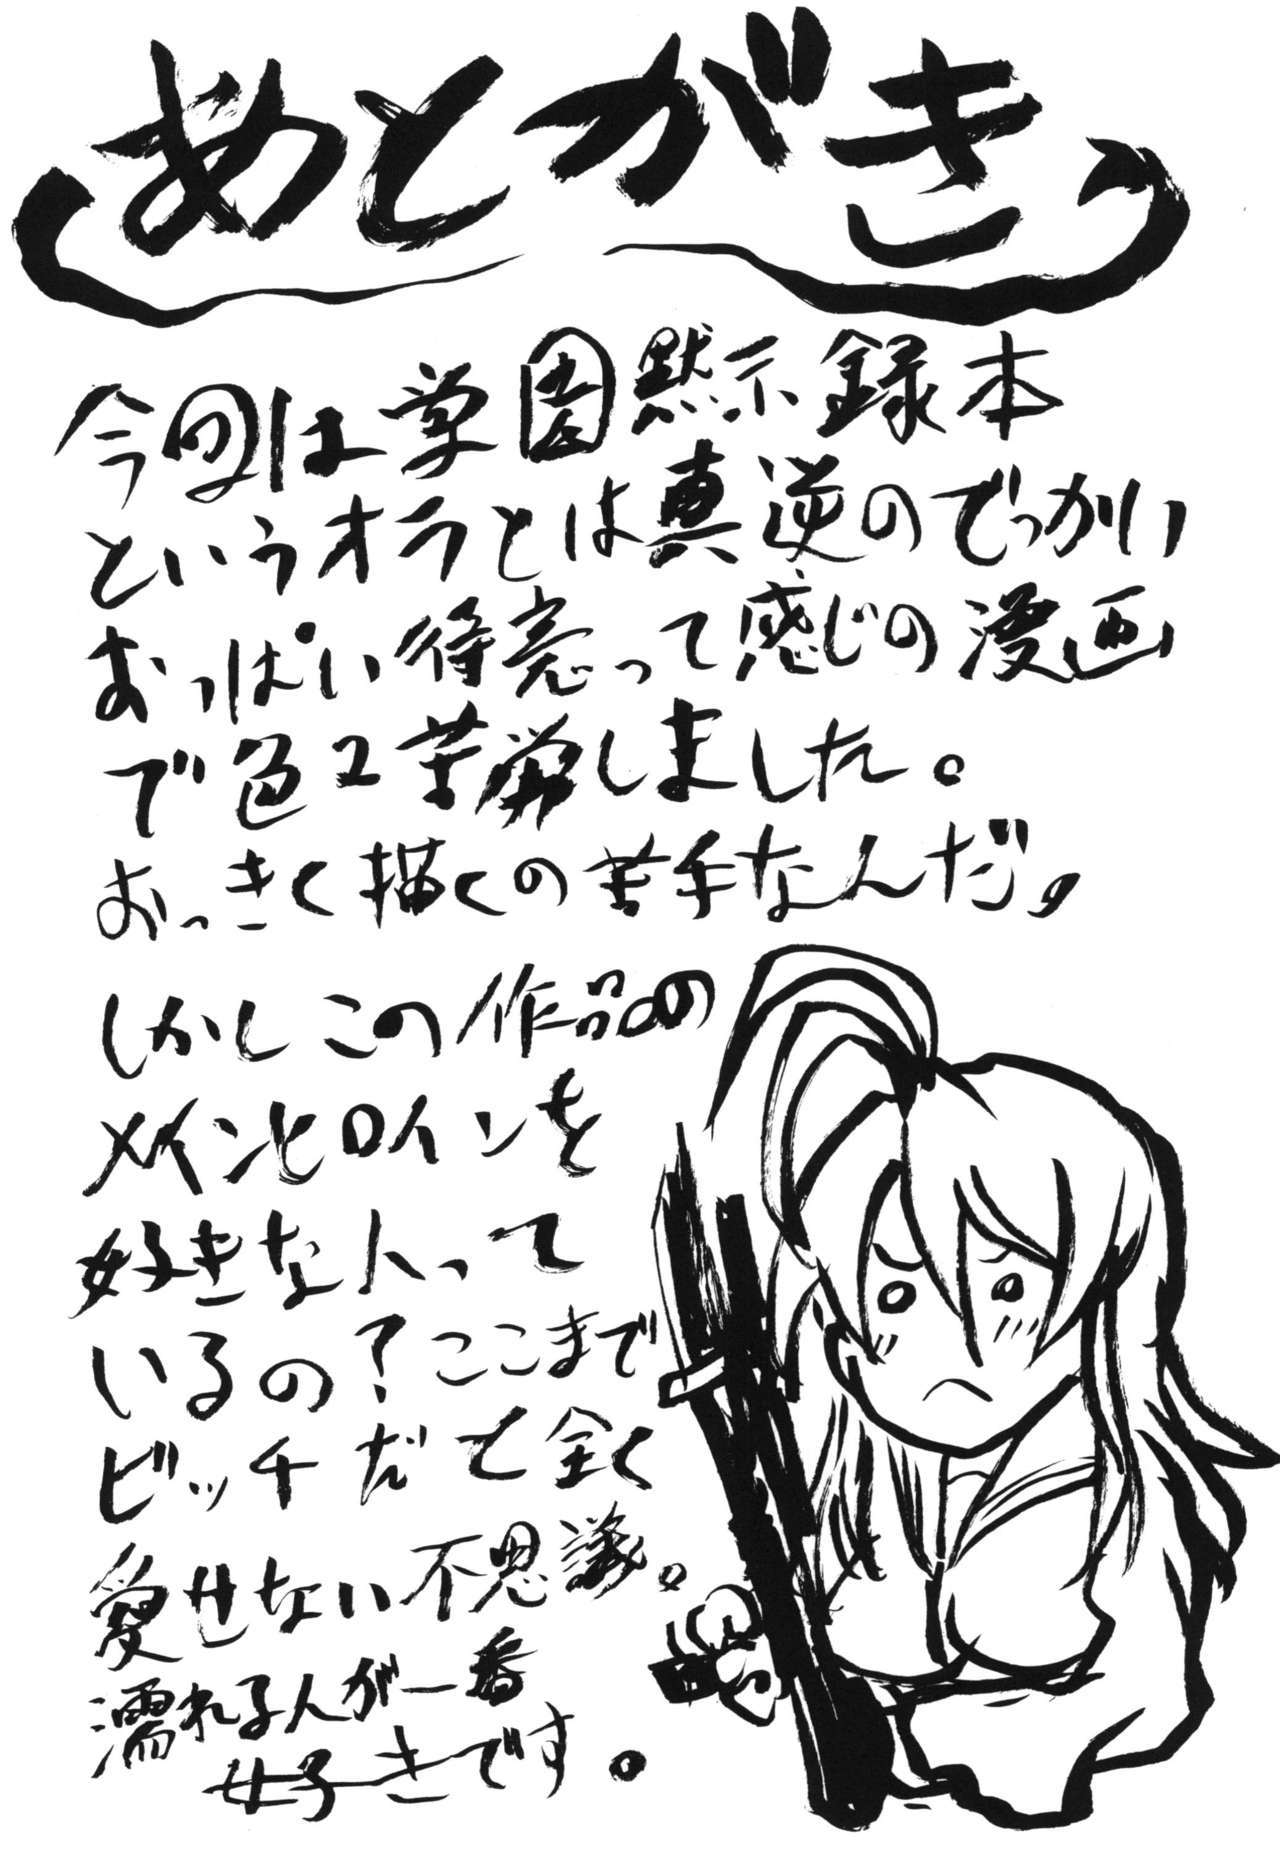 あとがき
今回は学園黙示録本
というオラとは真逆のでっかい
おっぱい待売って感じの漫画
で色々苦労しました。
おっきく描くの苦手なんだ,
しかしこの作品の
メインヒロインを
好きな人って
いるの？ここまで
ビッチだと全く
愛せない不思議。
濡れ子人が一番
好きです。